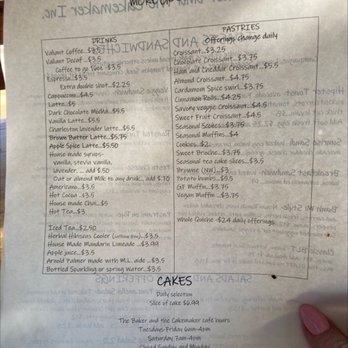 DRINKS
Valiant Coffee..$2.5
Valiant Decaf ..$3.5
Coffee to go Tote..$3.5
Espresso..$3.5
Extra double shot..$2.25
Cappuccino..$4.5
Latte..$5
Dark Chocolate Mocha..$5.5
Vanilla Latte..$5.5
Charleston lavender latte..$5.5
Brown Butter Latte..$5.75
Apple Spice Latte..$5.50
House made syrups-
Vanilla, stevia vanilla,
lavender, ... add $.50
Oat or almond Milk to any drink... add $.70
Americano..$3.5
Hot Cocoa ..$3.5
House made Chai..$5
Hot Tea..$3
Iced Tea..$2.50
Herbal Hibiscus Cooler
House Made Mandarin Limeade ..$3.99
Apple juice..$3.5
Arnold Palmer made with M.L. ade ..$3.5
Bottled Sparkling or spring Water..$3.5
PASTRIES
Offerings change daily
Croissant..$3.25
Chocolate Croissant..$3.75
Ham and Cheddar Croissant..$5.5
Almond Croissant..$4.75
Cardamom Spice swirl..$3.75
Cinnamon Rolls..$4.25
Savory veggie Croissant..$4.5
Sweet Fruit Croissant..$4.5
Seasonal Scones..$3.75
Seasonal Muffins..$4
Cookies..$2
Sweet Brioche..$3.75
Seasonal tea cake slices..$3.5
Brownie (NW)..$3
Potato Rounds..$3.5
GF Muffin..$3.75
Vegan Muffin..$3.75
Whole Quiche -$24 daily offerings
CAKES
Daily selection
Slice of cake $6.99
The Baker and the Cakemaker cafe hours
Tuesday-Friday 6am-4pm
Saturday 7am-4pm
Closed Sunday and Monday